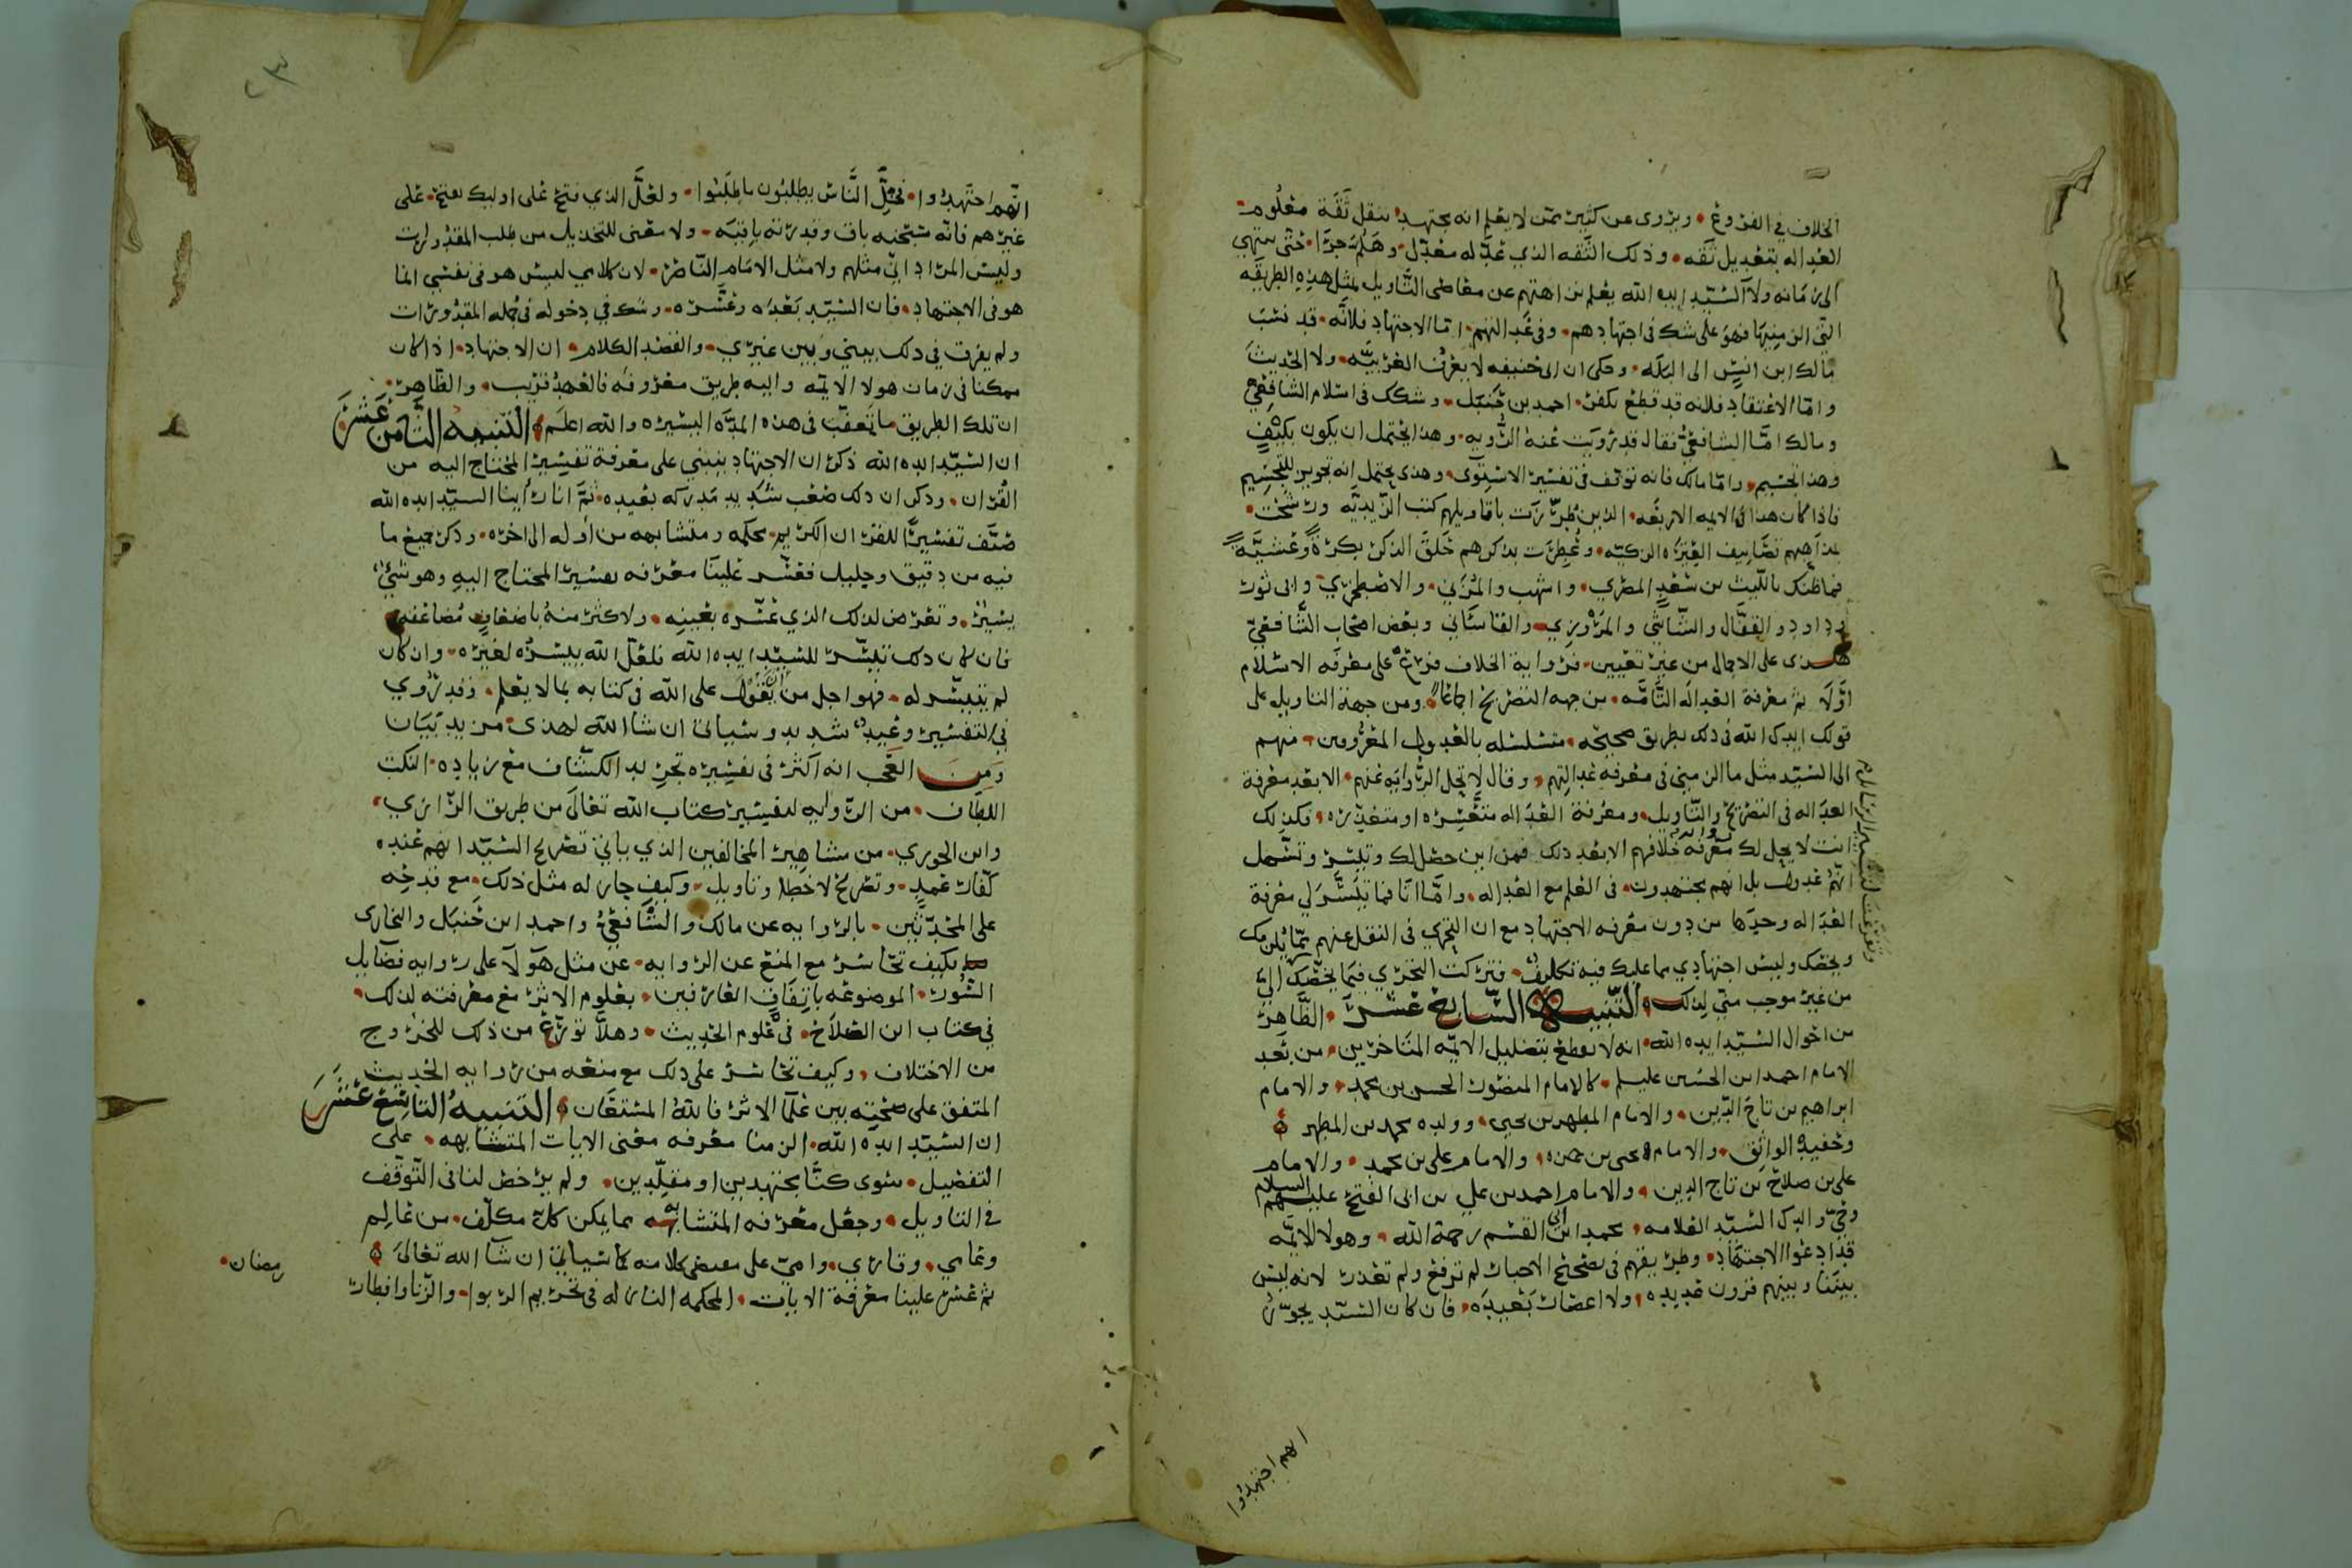 الخلاف في الفروع ويروى عن كثير ممن لا يعلم انه مجتهد بنقل ثقة معلوم
العداله بتعديل ثقه وذلك الثقه الذي عدّله معدّل وهلمّ جرّا حتى ينتهي
الى زمانه ولا السّيّد ايده الله يعلم براهتهم عن معاطى التّأويل بمثل هذه الطريقه
التى الزمنيها فهو على شك فى اجتهادهم وفى عدالتهم امّا الاجتهاد فلانّه قد نسب
مالك ابن انسٍ الى البله وحكى ان ابى حنيفه لا يعرف العربيّه ولا الحديث
وامّا الاعتقاد فلانه قد قطع بكفر احمد بن حنبل وشكك فى اسلام الشافعي
ومالك امّا الشافعيّ فقال قد رويت عنه الرّويه وهذا يحتمل ان يكون بكيفٍ
وهذا تجسيم وامّا مالك فانه توقف فى تفسير الاستوى وهذى يحتمل انه تجويز للتجسيم
فاذا كان هذا فى الايمه الاربعه الذين طرّزت باقاويلهم كتب الزّيديّه ورشحت
بمذاهبهم تصانيف العترة الزكيّه وعطرت بذكرهم حلق الذكر بكرةً وعشيّةً
فما ظنك بالليث بن سعدٍ المصري واشهب والمزني والاصطخري وابى ثور
وداود والقفّال والشّاشي والمروزي والقاساني وبعض اصحاب الشّافعيّ
هذى على الاجمال من غير تعيين فرواية الخلاف فرع على معرفه الاسلام
اوّلا ثم معرفة العداله التّامّه من جهه التصريح اجماعا ومن جهة التاويل على
قولك ايدك الله فى ذلك بطريق صحيحه متسلسله بالعدول المعروفين منهم
الى السّيّد مثل ما الزمني فى معرفه عدالتهم وقال لا تحل الرّوايه عنهم الا بعد معرفة
العداله فى التصريح والتاويل ومعرفة العداله متعسّره او متعذّره فكذلك
انت لا يحل لك معرفة خلافهم الا بعد ذلك فمن اين حصل لك وتيسّر وتسهل
انّهم عدول بل انهم مجتهدون فى العلم مع العداله وامّا انا فما تيسّر لي معرفة
العداله وحدها من دون معرفه الاجتهاد مع ان التحري فى النقل عنهم ممّا يلزمك
ويخصك وليس اجتهادي مما عليك فيه تكليف فتركت التحري فيما يخصّك اليّ
من غير موجب منّي لذلك التّنبيه السّابع عشر الظّاهر
من احوال السّيّد ايده الله انه لا يقطع بتضليل الايمّه المتاخرين من بعد
الامام احمد ابن الحسين عليلم كالامام المنصور الحسن بن محمد والامام
ابراهيم بن تاج الدّين والامام المطهر بن يحيى وولده محمد بن المطهر
وحفيده الواثق والامام يحيى بن حمزه والامام على بن محمد والامام
على بن صلاح بن تاج الدين والامام احمد بن علي بن ابى الفتح عليهم السلام
وحيّ والدك السّيّد العلامه محمد ابن ابى القسم رحمة الله وهولا الايمّه
قد ادعوا الاجتهاد وطريقهم فى تصحيح الاخبار لم ترفع ولم تعذر لانه ليس
بيننا وبينهم قرون عديده ولا اعصار بعيده فان كان السّيّد يجوّز
انهم اجتهدوا
انّهم اجتهدوا فخلّ النّاس يطلبون ما طلبوا ولعلّ الذي فتح على اوليك يفتح على
غيرهم فانّه سبحنه باق وقدرته باقيه ولا معنى للتخذيل من طلب المقدورات
وليس المراد انّي مثلهم ولا مثل الامام النّاصر لان كلامي ليس هو فى نفسي انما
هو فى الاجتهاد فان السّيّد بعّده وعسّره وشك في دخوله فى جمله المقدورات
ولم يفرق في ذلك بيني وبين غيري والقصد الكلام ان الاجتهاد اذا كان
ممكنا فى زمان هولا الايمّه واليه طريق معروفه فالعهد قريب والظّاهر
ان تلك الطريق ما تعفّت فى هذه المدّه اليسيره والله اعلم التّنبيه الثّامن عشر
ان السّيّد ايده الله ذكر ان الاجتهاد ينبني على معرفة تفسير المحتاج اليه من
القران وذكر ان ذلك صعب شديد مدركه بعيده ثمّ انا راينا السيّد ايده الله
صنّف تفسيرًا للقران الكريم محكمه ومتشابهه من اوله الى اخره وذكر جميع ما
فيه من دقيق وجليل فعسّر علينا معرفه تفسير المحتاج اليه وهو شيٌ
يسيرٌ وتعرض لذلك الذي عسّره بعينه ولاكثر منه باضعافٍ مضاعفه
فان كان ذلك تيسّر للسّيّد ايده الله فلعلّ الله ييسّره لغيره وان كان
لم يتيسّر له فهو اجل من ان يقول على الله فى كتابه بما لا يعلم وقد روي
في التفسير وعيدٌ شديد وسياتى ان شا الله لهذى مزيد بيان
ومن العجب انه اكثر فى تفسيره تجريد الكشّاف مع زياده النكت
اللطاف من الرّوايه لتفسير كتاب الله تعالى من طريق الرّازي
وابن الجوزي من مشاهير المخالفين الذي ياتي تصريح السّيّد انهم عنده
كفّار عمدٍ وتصريح لا خطا وتاويل وكيف جاز له مثل ذلك مع قدحِه
على المحدّثين بالروايه عن مالك والشّافعيّ واحمد ابن حنبل والبخارى
بكيف تجاسر مع المنع عن الروايه عن مثل هوَلا على روايه فضايل
السّور الموضوعه باتفاق العارفين بعلوم الاثر مع معرفته لذلك
في كتاب ابن الصّلاح فى علوم الحديث وهلّا تورّع من ذلك للخروج
من الاختلاف وكيف تجاسر على ذلك مع منعه من روايه الحديث
المتفق على صحّته بين علما الاثر فالله المستعان التنبيه التاسع عشر
ان السّيّد ايده الله الزمنا معرفه معنى الايات المتشابهه على
التفصيل سوى كنّا مجتهدين او مقلّدين ولم يرخص لنا فى التّوقّف
في التاويل وجعل معرفه المتشابه مما يمكن كلّ مكلّف من عالِم
وعامي وقاري وامّي على مقتضى كلامه كما سياتي ان شآ الله تعالى
ثم عسّر علينا معرفة الايات المحكمه النازله فى تحريم الربوا والزنا وافطار
رمضان